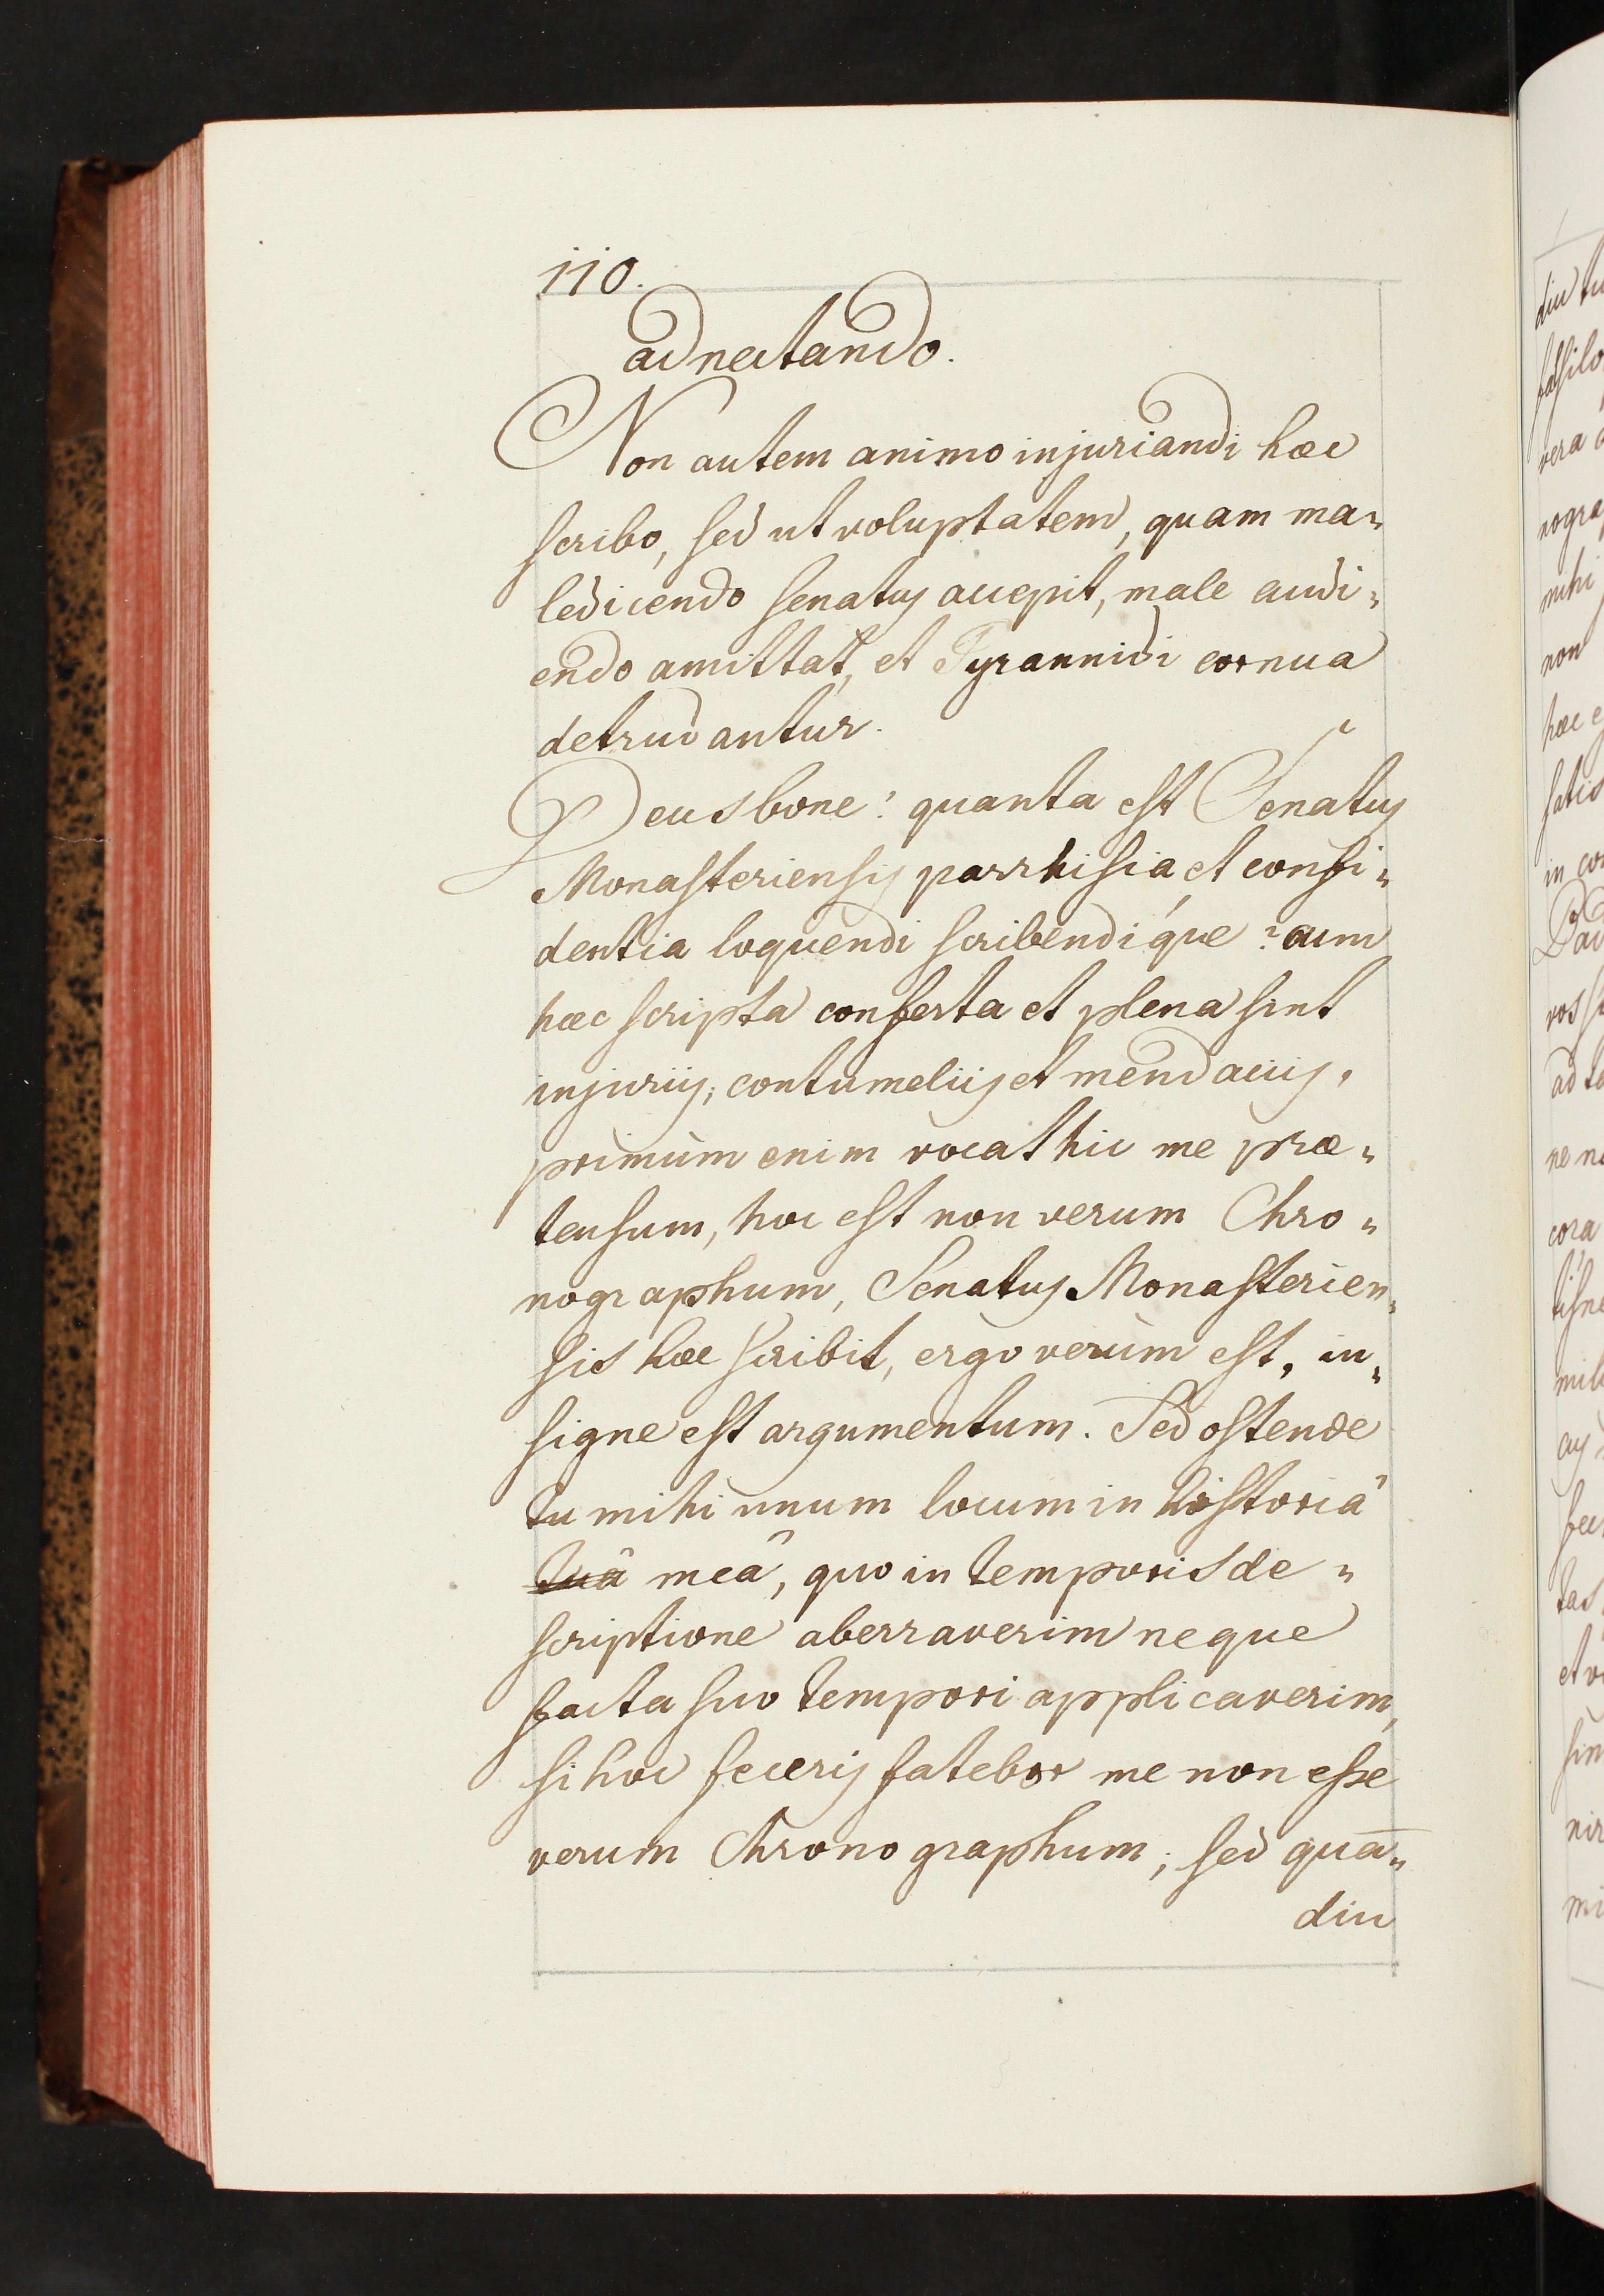 110.
adnectando.
Non autem animo injuriandi hæc
scribo, sed ut voluptatem, quam ma⸗
ledicendo senatus accepit, male audi⸗
endo amittat, et Tyrannidi cornua
detrudantur.
Deus bone! quanta est Senatus
Monasteriensis parrhisia, et confi⸗
dentia loquendi scribendíque? cum
hæc scripta conferta et plena sint
injuriis, contumeliis et mendaciis,
primùm enim vocat hic me præ⸗
tensum, hoc est non verum Chro⸗
nographum, Senatus Monasterien⸗
sis hæc scribit, ergo verùm est, in⸗
signe est argumentum. Sed ostende
tu mihi unum locum in historiâ
tuâ meâ, quo in temporis de⸗
scriptione aberraverim neque
facta suo tempori applicaverim,
si hoc feceris fatebor me non esse
verum Chronographum; sed quā⸗
diu